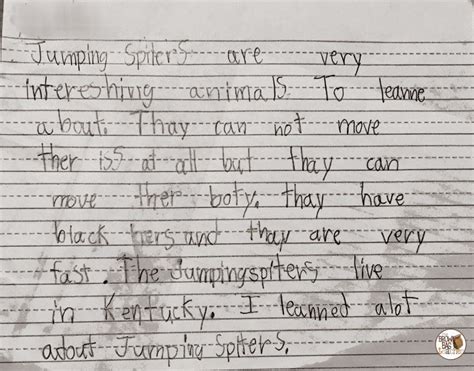 Jumping Spiters are very
intereshivg animals To leanne
about. Thay can not move
ther iss at all but thay can
move ther boty. thay have
black hers and thay are very
fast. The Jumpingspiters live
in Kentucky. I leanned alot
about Jumping Spiters.